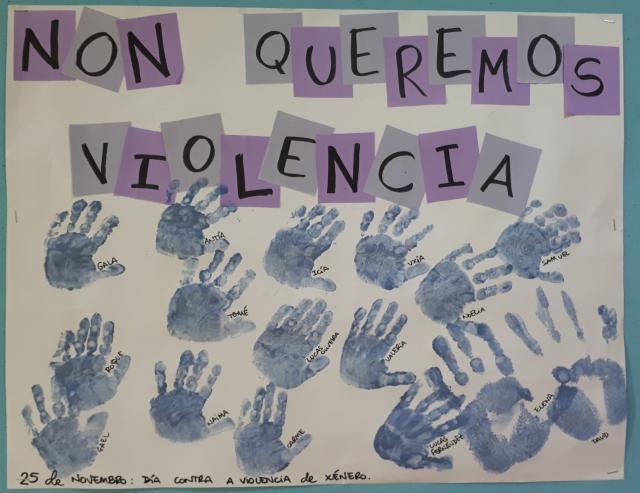 NON QUEREMOS
VIOLENCIA
GALA
ANTÍA
ICÍA
UXÍA
SAMUEL
TOMÉ
NOELIA
ROQUE
LUCAS OLIVEIRA
VALERIA
GAEL
NAIMA
LUCAS FERNÁNDEZ
ELENA
DAVID
25 de NOVEMBRO: DÍA CONTRA A VIOLENCIA de XÉNERO.